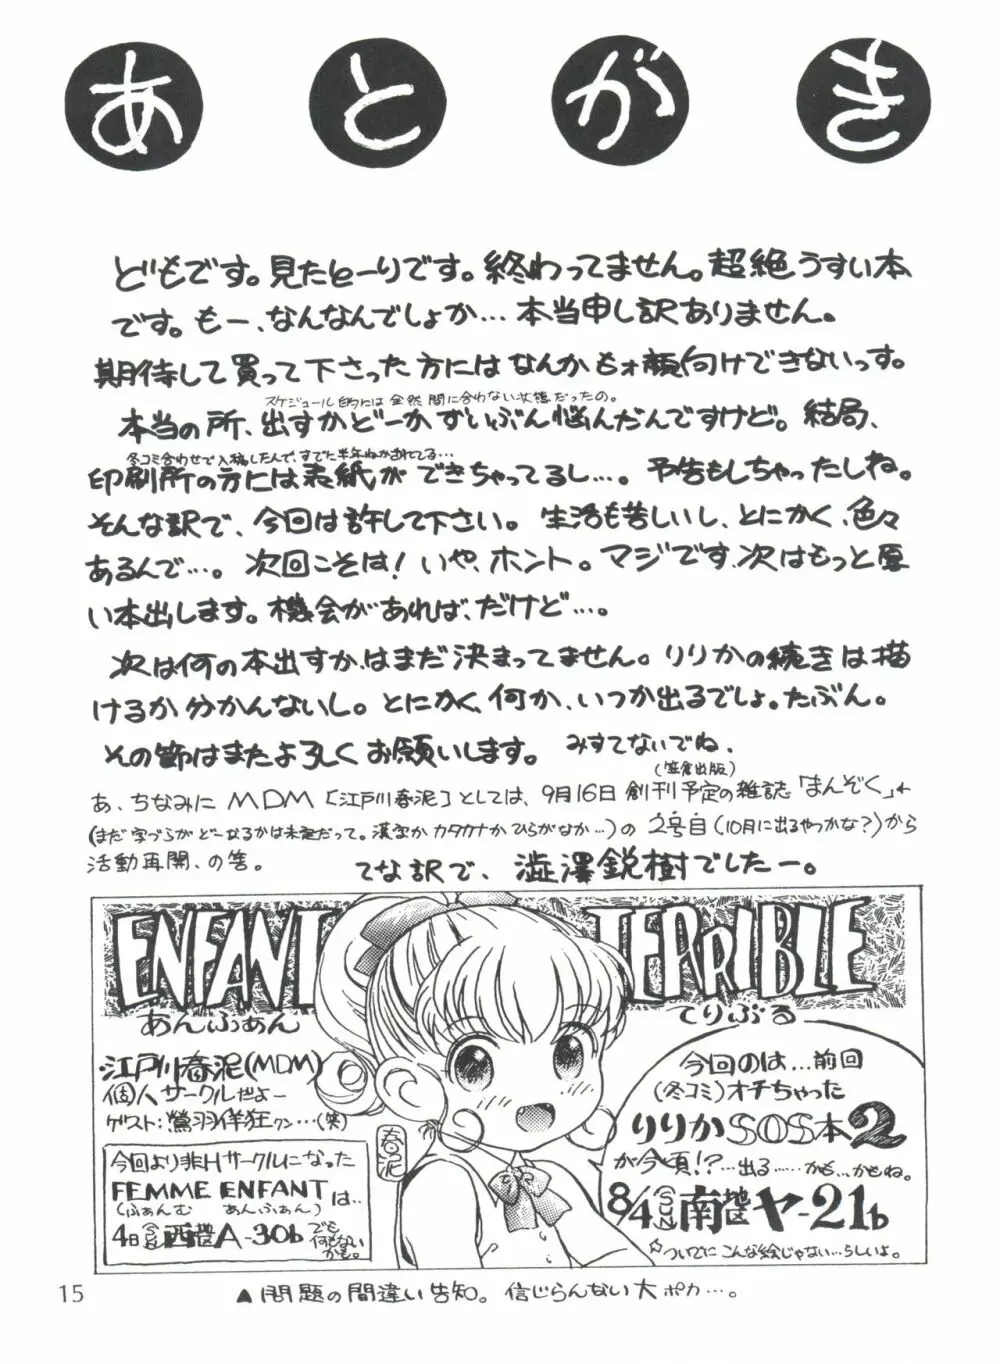 あとがき
どもです。見たとーりです。終わってません。超絶うすい本
です。もー、なんなんでしょか…本当申し訳ありません。
期待して買って下さった方にはなんかもォ顔向けできないっす。
スケジュール的には全然間に合わない状態だったの。
本当の所、出すかどーかずいぶん悩んだんですけど。結局、
冬コミ合わせで入稿したんで、すでに半年ねかされてる…
印刷所の方には表紙ができちゃってるし…。予告もしちゃったしね。
そんな訳で、今回は許して下さい。生活も苦しいし、とにかく、色々
あるんで…。次回こそは!いや、ホント。マジです、次はもっと厚
い本出します。機会があれば、だけど…。
次は何の本出すか、はまだ決まってません。りりかの続きは描
けるか分かんないし。とにかく、何か、いつか出るでしょ。たぶん。
その節はまたよろしくお願いします。みすてないでね、
(笠倉出版)
あ、ちなみにMDM[江戸川春泥]としては、9月16日創刊予定の雑誌「まんぞく」
(まだ字づらがどーなるかは未定だって。漢字かカタカナかひらがなか…)の2号目(10月に出るやつかな?)から
活動再開、の筈。
てな訳で、澁澤鋭樹でしたー。
ENFANT TERRIBLE
あんふぁん てりぶる
江戸川春泥(MDM)
個人サークルだよー
ゲスト:鶯羽佯狂クン…(笑)
今回より非Hサークルになった
FEMME ENFANTは…
(ふぁんむ あんふぁん)
4日SUN西地区A-30b でも何もないかも。
春泥
今回のは…前回
(冬コミ)オチちゃった
りりかSOS本2
が今頃!?…出る……かも…かもね。
8/4SUN南地区ヤ-21b
ついでにこんな絵じゃない…らしいよ。
15
▲問題の間違い告知。信じらんない大ポカ…。